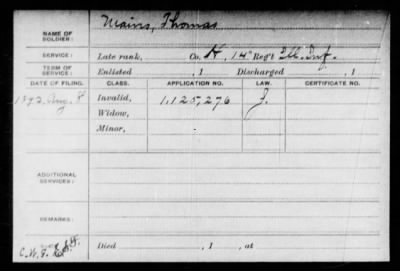 NAME OF SOLDIER: Mains, Thomas
SERVICE: Late rank, Co. H, 14" Reg't Ill. Inf.
TERM OF SERVICE: Enlisted , 1 Discharged , 1
DATE OF FILING. CLASS. APPLICATION NO. LAW. CERTIFICATE NO.
1892 Aug. 8 Invalid, 1,125,276 J.
Widow,
Minor,
ADDITIONAL SERVICES:
REMARKS:
Died , 1 , at